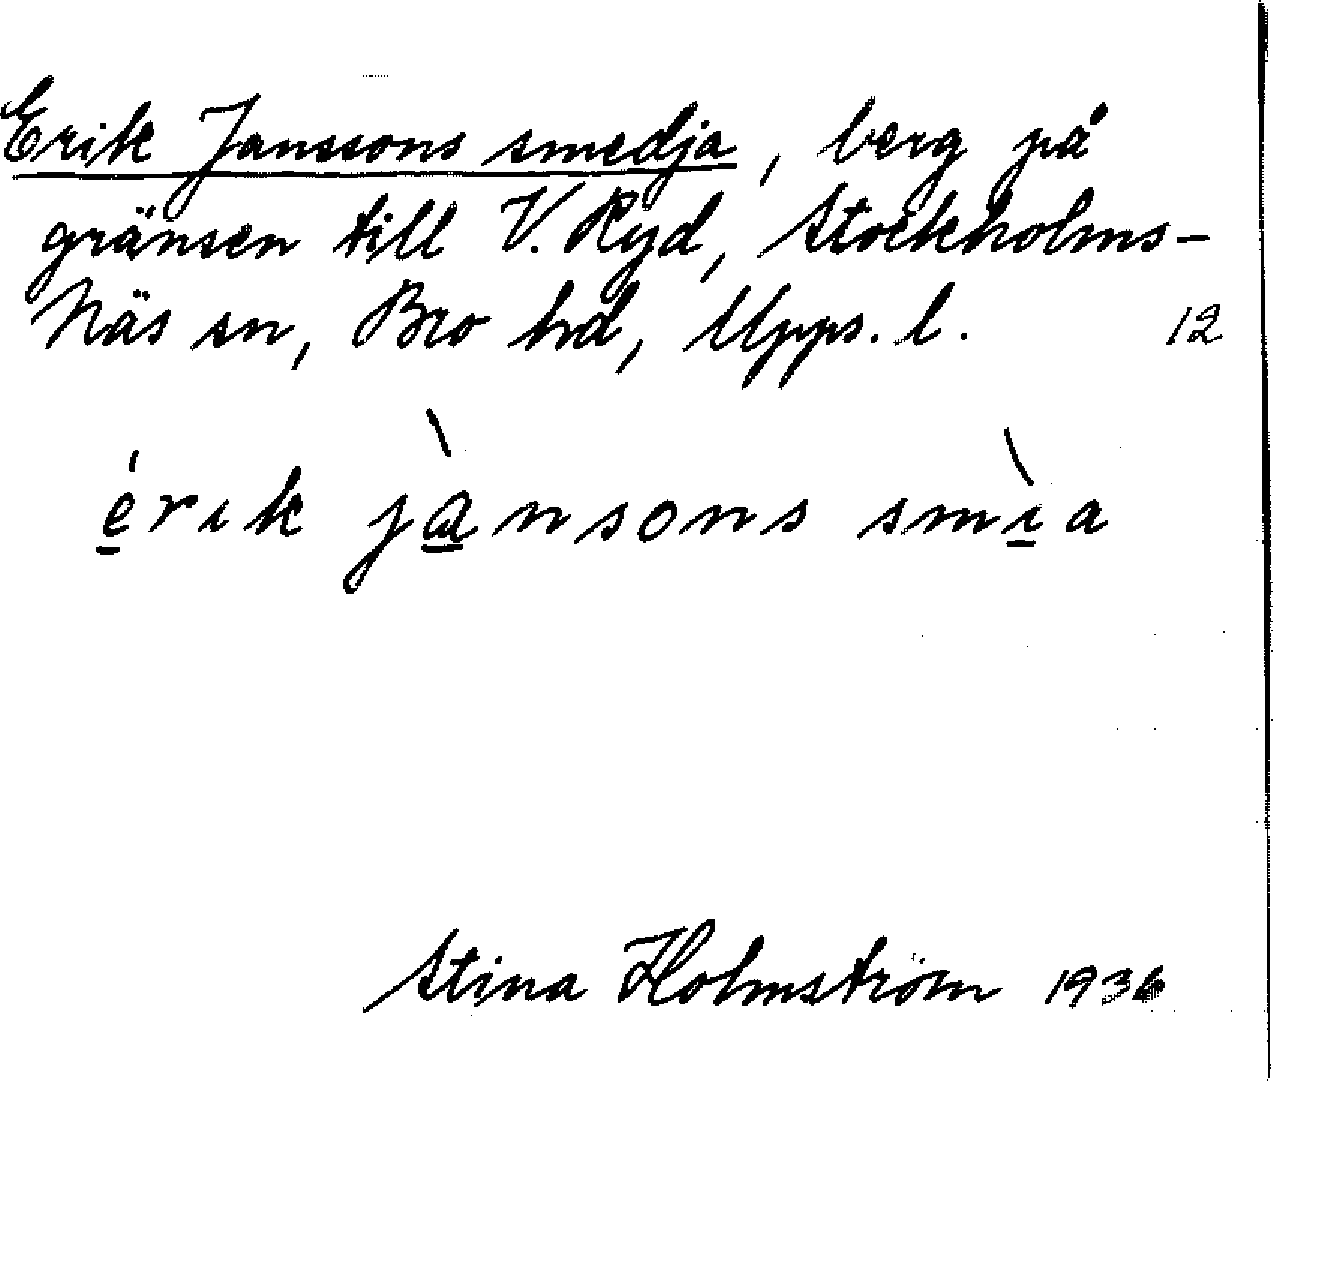 Erik Janssons smedja, berg på
gränsen till V. Ryd, Stockholms-
Näs sn, Bro hd, Upps. l. 12
érik jànsons smìa
Stina Holmström 1936